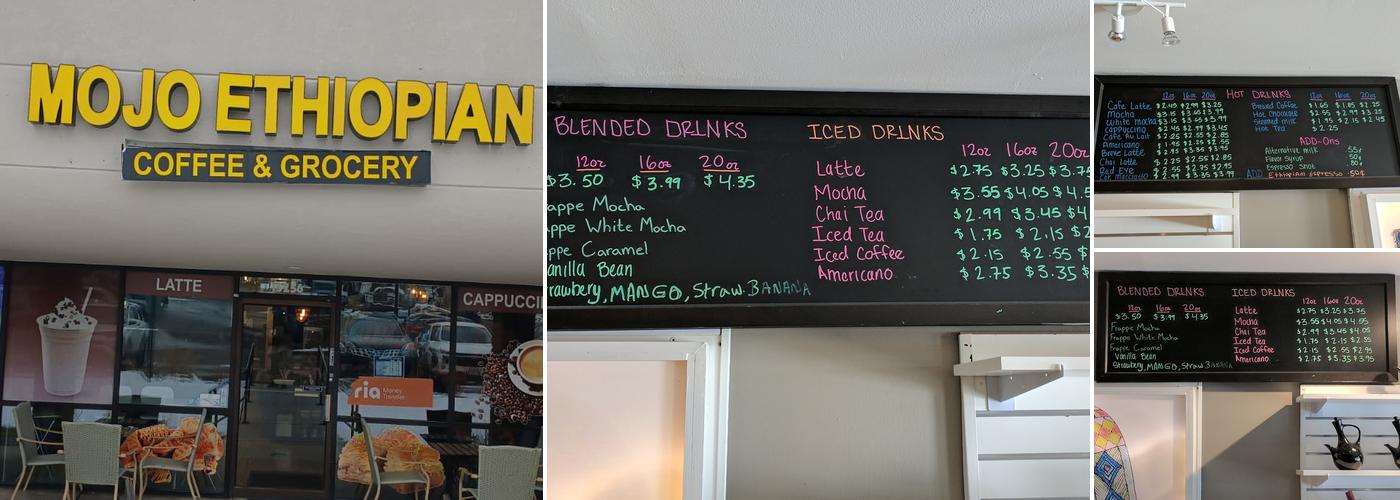 MOJO ETHIOPIAN
COFFEE & GROCERY
LATTE
CAPPUCCI
ria Money Transfer
BLENDED DRINKS
12oz 16oz 20oz
$3.50 $3.99 $4.35
appe Mocha
appe White Mocha
ppe Caramel
anilla Bean
rawbery, MANGO, Straw.BANANA
ICED DRINKS
12oz 16oz 20oz
Latte $2.75 $3.25 $3.75
Mocha $3.55 $4.05 $4.5
Chai Tea $2.99 $3.45 $4
Iced Tea $1.75 $2.15 $2
Iced Coffee $2.15 $2.55 $
Americano $2.75 $3.35 $
HOT DRINKS
12oz 16oz 20oz
Cafe Latte $2.45 $2.99 $3.25
Mocha
White mocha
Cappuccino $2.45 $2.99 $3.45
Cafe Au Lait $2.25 $2.55 $2.85
Americano $1.95 $2.25
Breve Latte
Chai Latte $2.25 $2.55 $2.85
Red Eye
$2.99 $3.35 $3.99
12oz 16oz 20oz
Brewed Coffee $1.65 $1.85 $2.25
Hot Chocolate
Steamed milk $1.95 $2.15 $2.45
Hot Tea $2.25
ADD-Ons
Alternative milk .55¢
Flavor Syrup .50¢
Espresso Shot .80¢
ADD Ethiopian Espresso .50¢
BLENDED DRINKS
12oz 16oz 20oz
$3.50 $3.99 $4.35
Frappe Mocha
Frappe White Mocha
Frappe Caramel
Vanilla Bean
Strawbery, MANGO, Straw.BANANA
ICED DRINKS
12oz 16oz 20oz
Latte $2.75 $3.25 $3.75
Mocha $3.55 $4.05 $4.55
Chai Tea $2.99 $3.45 $4.05
Iced Tea $1.75 $2.15 $2.55
Iced Coffee $2.15 $2.55 $2.95
Americano $2.75 $3.35 $3.95